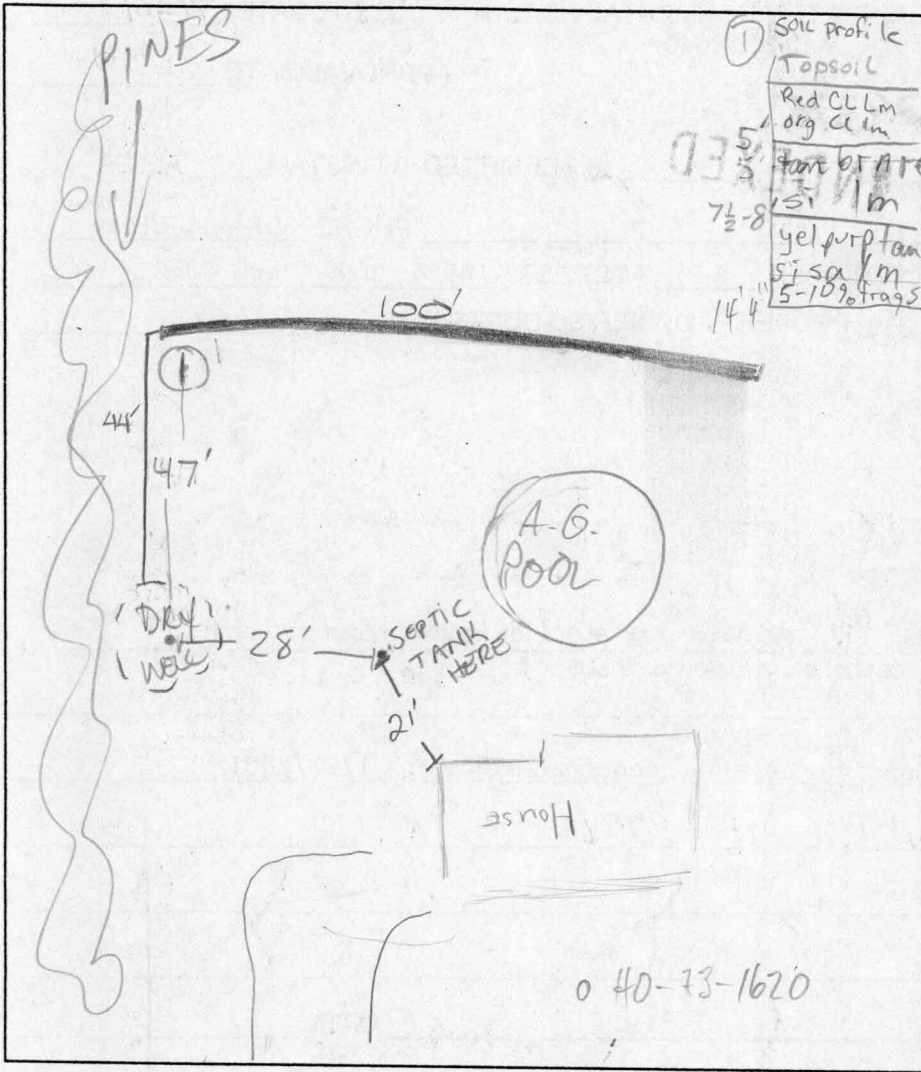 PINES
① Soil profile
Topsoil
Red CL Lm
org CL lm
5'
5'
tan brn re
si lm
7½-8'
yel purp tan
si sa lm
5-10% frags
14'4"
100'
1
44'
47'
A-G.
POOL
DRY
WELL
28'
SEPTIC
TANK
HERE
21'
House
o HO-73-1620